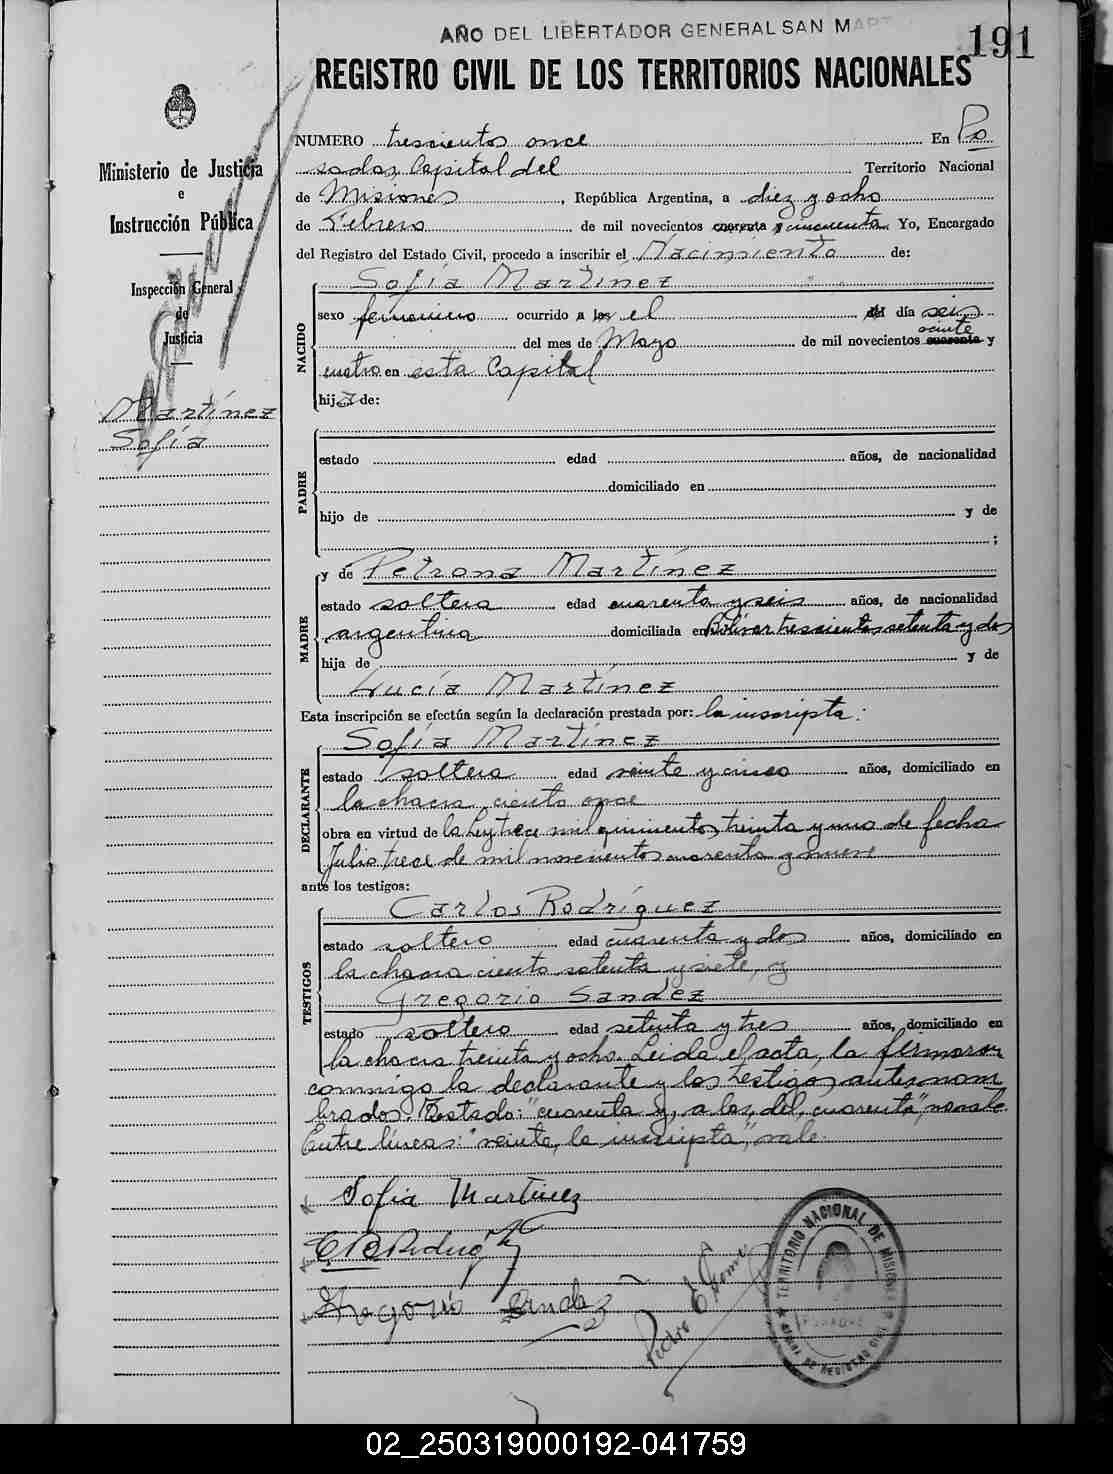 AÑO DEL LIBERTADOR GENERAL SAN MART
191
REGISTRO CIVIL DE LOS TERRITORIOS NACIONALES
Ministerio de Justicia
e
Instrucción Pública
Inspección General
de
Justicia
Martínez
Sofía
NUMERO trescientos once En Po
sadas, Capital del Territorio Nacional
de Misiones, República Argentina, a diez y ocho
de Febrero de mil novecientos cuarenta y cincuenta Yo, Encargado
del Registro del Estado Civil, procedo a inscribir el Nacimiento de:
Sofía Martínez
NACIDO
sexo femenino ocurrido a las el del día seis
veinte
del mes de Mayo de mil novecientos cuarenta y
cuatro en esta Capital
hija de:
PADRE
estado edad años, de nacionalidad
domiciliado en
hijo de y de
;
y de Petrona Martínez
MADRE
estado soltera edad cuarenta y seis años, de nacionalidad
argentina domiciliada en Bolívar trescientos setenta y dos
hija de y de
Lucía Martínez
Esta inscripción se efectúa según la declaración prestada por: la inscripta:
Sofía Martínez
DECLARANTE
estado soltera edad veinte y cinco años, domiciliado en
la chacra ciento once
obra en virtud de la Ley trece mil quinientos treinta y uno de fecha
Julio trece de mil novecientos cuarenta y nueve
ante los testigos:
Carlos Rodríguez
TESTIGOS
estado soltero edad cuarenta y dos años, domiciliado en
la chacra ciento setenta y siete, y
Gregorio Sandez
estado soltero edad setenta y tres años, domiciliado en
la chacra treinta y ocho. Leida el acta, la firmaron
conmigo la declarante y los testigos antes nom
brados. Testado: "cuarenta y, a las, del, cuarenta", no vale.
Entre líneas: "veinte, la inscripta", vale.
Sofia Martinez
Gregorio Sandez
Pedro E.
TERRITORIO NACIONAL DE MISIONES
POSADAS
02_250319000192-041759